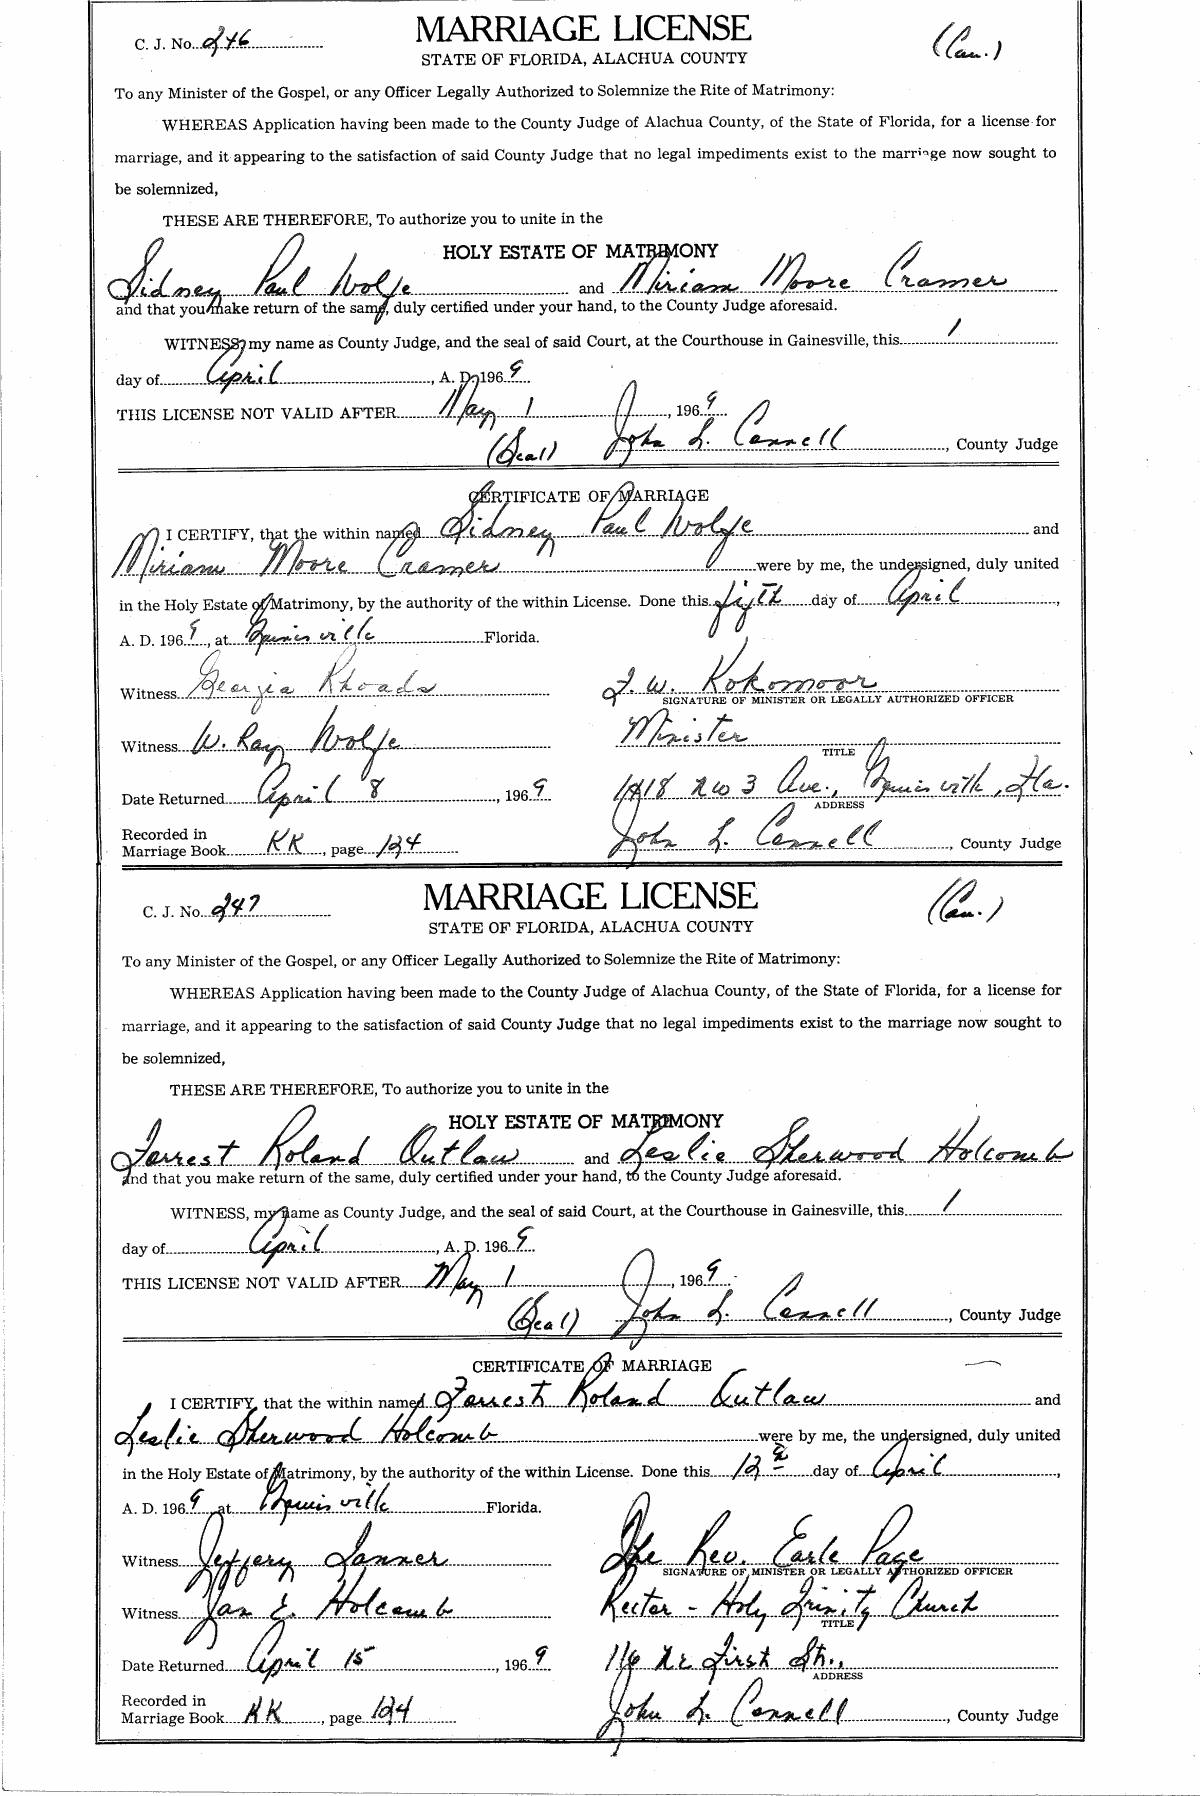 C. J. No. 246
MARRIAGE LICENSE
(Cau.)
STATE OF FLORIDA, ALACHUA COUNTY
To any Minister of the Gospel, or any Officer Legally Authorized to Solemnize the Rite of Matrimony:
WHEREAS Application having been made to the County Judge of Alachua County, of the State of Florida, for a license for
marriage, and it appearing to the satisfaction of said County Judge that no legal impediments exist to the marriage now sought to
be solemnized,
THESE ARE THEREFORE, To authorize you to unite in the
HOLY ESTATE OF MATRIMONY
Sidney Paul Wolfe and Miriam Moore Cramer
and that you make return of the same, duly certified under your hand, to the County Judge aforesaid.
WITNESS, my name as County Judge, and the seal of said Court, at the Courthouse in Gainesville, this 1
day of April, A. D. 1969
THIS LICENSE NOT VALID AFTER May 1, 1969
(Seal) John L. Connell, County Judge
CERTIFICATE OF MARRIAGE
I CERTIFY, that the within named Sidney Paul Wolfe and
Miriam Moore Cramer were by me, the undersigned, duly united
in the Holy Estate of Matrimony, by the authority of the within License. Done this fifth day of April,
A. D. 1969, at Gainesville Florida.
Witness Georgia Rhoads
F. W. Kokomoor
SIGNATURE OF MINISTER OR LEGALLY AUTHORIZED OFFICER
Witness W. Ray Wolfe
Minister
TITLE
Date Returned April 8, 1969
1418 NW 3 Ave., Gainesville, Fla.
ADDRESS
Recorded in
Marriage Book KK, page 124
John L. Connell, County Judge
C. J. No. 247
MARRIAGE LICENSE
(Cau.)
STATE OF FLORIDA, ALACHUA COUNTY
To any Minister of the Gospel, or any Officer Legally Authorized to Solemnize the Rite of Matrimony:
WHEREAS Application having been made to the County Judge of Alachua County, of the State of Florida, for a license for
marriage, and it appearing to the satisfaction of said County Judge that no legal impediments exist to the marriage now sought to
be solemnized,
THESE ARE THEREFORE, To authorize you to unite in the
HOLY ESTATE OF MATRIMONY
Forrest Roland Outlaw and Leslie Sherwood Holcomb
and that you make return of the same, duly certified under your hand, to the County Judge aforesaid.
WITNESS, my name as County Judge, and the seal of said Court, at the Courthouse in Gainesville, this 1
day of April, A. D. 1969
THIS LICENSE NOT VALID AFTER May 1, 1969
(Seal) John L. Connell, County Judge
CERTIFICATE OF MARRIAGE
I CERTIFY, that the within named Forrest Roland Outlaw and
Leslie Sherwood Holcomb were by me, the undersigned, duly united
in the Holy Estate of Matrimony, by the authority of the within License. Done this 12 day of April,
A. D. 1969 at Gainesville Florida.
Witness Jeffery Tanner
The Rev. Earle Page
SIGNATURE OF MINISTER OR LEGALLY AUTHORIZED OFFICER
Witness Jan E. Holcomb
Rector - Holy Trinity Church
TITLE
Date Returned April 15, 1969
116 NE First St.,
ADDRESS
Recorded in
Marriage Book KK, page 124
John L. Connell, County Judge